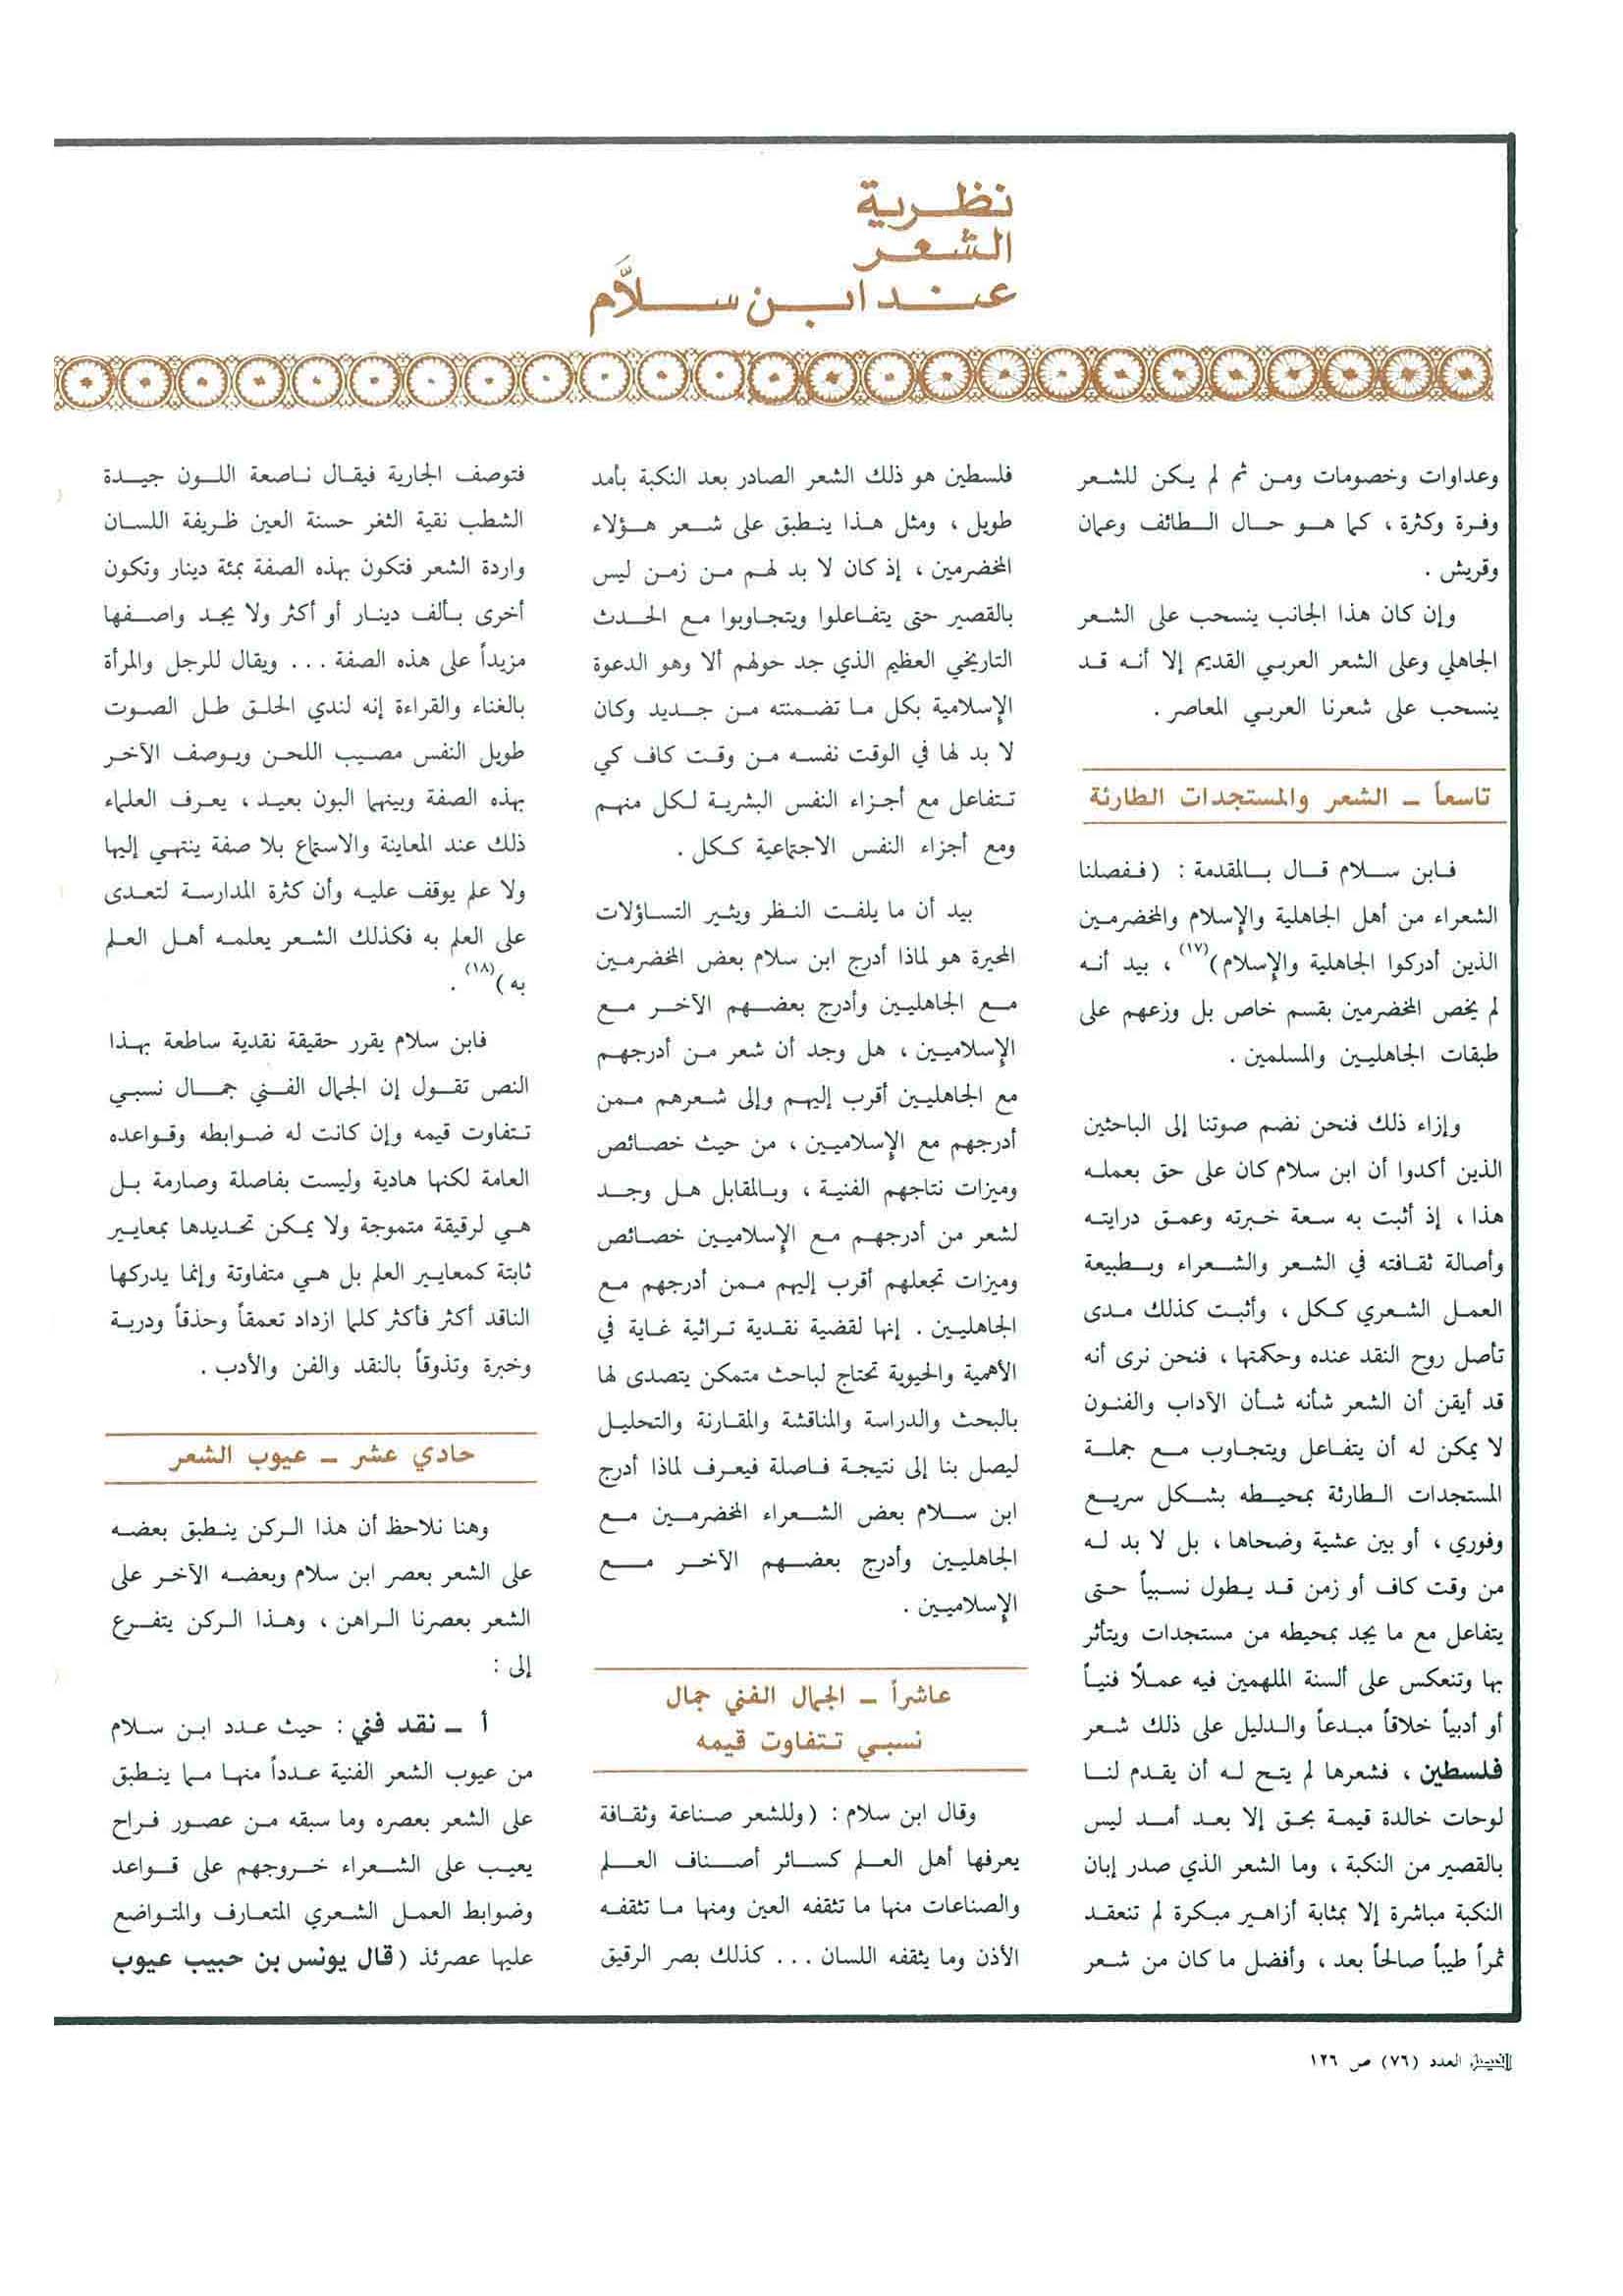 نظرية
الشعر
عند ابن سلاَّم
وعداوات وخصومات ومن ثم لم يكن للشعر
وفرة وكثرة ، كما هو حال الطائف وعمان
وقريش .
وإن كان هذا الجانب ينسحب على الشعر
الجاهلي وعلى الشعر العربي القديم إلا أنه قد
ينسحب على شعرنا العربي المعاصر .
تاسعاً – الشعر والمستجدات الطارئة
فابن سلام قال بالمقدمة : (ففصلنا
الشعراء من أهل الجاهلية والإسلام والمخضرمين
الذين أدركوا الجاهلية والإسلام)(١٧) ، بيد أنه
لم يخص المخضرمين بقسم خاص بل وزعهم على
طبقات الجاهليين والمسلمين .
وإزاء ذلك فنحن نضم صوتنا إلى الباحثين
الذين أكدوا أن ابن سلام كان على حق بعمله
هذا ، إذ أثبت به سعة خبرته وعمق درايته
وأصالة ثقافته في الشعر والشعراء وبطبيعة
العمل الشعري ككل ، وأثبت كذلك مدى
تأصل روح النقد عنده وحكمتها ، فنحن نرى أنه
قد أيقن أن الشعر شأنه شأن الآداب والفنون
لا يمكن له أن يتفاعل ويتجاوب مع جملة
المستجدات الطارئة بمحيطه بشكل سريع
وفوري ، أو بين عشية وضحاها ، بل لا بد له
من وقت كاف أو زمن قد يطول نسبياً حتى
يتفاعل مع ما يجد بمحيطه من مستجدات ويتأثر
بها وتنعكس على ألسنة الملهمين فيه عملاً فنياً
أو أدبياً خلاقاً مبدعاً والدليل على ذلك شعر
فلسطين ، فشعرها لم يتح له أن يقدم لنا
لوحات خالدة قيمة بحق إلا بعد أمد ليس
بالقصير من النكبة ، وما الشعر الذي صدر إبان
النكبة مباشرة إلا بمثابة أزاهير مبكرة لم تنعقد
ثمراً طيباً صالحاً بعد ، وأفضل ما كان من شعر
فلسطين هو ذلك الشعر الصادر بعد النكبة بأمد
طويل ، ومثل هذا ينطبق على شعر هؤلاء
المخضرمين ، إذ كان لا بد لهم من زمن ليس
بالقصير حتى يتفاعلوا ويتجاوبوا مع الحدث
التاريخي العظيم الذي جد حولهم ألا وهو الدعوة
الإسلامية بكل ما تضمنته من جديد وكان
لا بد لها في الوقت نفسه من وقت كاف كي
تتفاعل مع أجزاء النفس البشرية لكل منهم
ومع أجزاء النفس الاجتماعية ككل .
بيد أن ما يلفت النظر ويثير التساؤلات
المحيرة هو لماذا أدرج ابن سلام بعض المخضرمين
مع الجاهليين وأدرج بعضهم الآخر مع
الإسلاميين ، هل وجد أن شعر من أدرجهم
مع الجاهليين أقرب إليهم وإلى شعرهم ممن
أدرجهم مع الإسلاميين ، من حيث خصائص
وميزات نتاجهم الفنية ، وبالمقابل هل وجد
لشعر من أدرجهم مع الإسلاميين خصائص
وميزات تجعلهم أقرب إليهم ممن أدرجهم مع
الجاهليين . إنها لقضية نقدية تراثية غاية في
الأهمية والحيوية تحتاج لباحث متمكن يتصدى لها
بالبحث والدراسة والمناقشة والمقارنة والتحليل
ليصل بنا إلى نتيجة فاصلة فيعرف لماذا أدرج
ابن سلام بعض الشعراء المخضرمين مع
الجاهليين وأدرج بعضهم الآخر مع
الإسلاميين .
عاشراً – الجمال الفني جمال
نسبي تتفاوت قيمه
وقال ابن سلام : (وللشعر صناعة وثقافة
يعرفها أهل العلم كسائر أصناف العلم
والصناعات منها ما تثقفه العين ومنها ما تثقفه
الأذن وما يثقفه اللسان ... كذلك بصر الرقيق
فتوصف الجارية فيقال ناصعة اللون جيدة
الشطب نقية الثغر حسنة العين ظريفة اللسان
واردة الشعر فتكون بهذه الصفة بمئة دينار وتكون
أخرى بألف دينار أو أكثر ولا يجد واصفها
مزيداً على هذه الصفة ... ويقال للرجل والمرأة
بالغناء والقراءة إنه لندي الحلق طل الصوت
طويل النفس مصيب اللحن ويوصف الآخر
بهذه الصفة وبينهما البون بعيد ، يعرف العلماء
ذلك عند المعاينة والاستماع بلا صفة ينتهي إليها
ولا علم يوقف عليه وأن كثرة المدارسة لتعدى
على العلم به فكذلك الشعر يعلمه أهل العلم
به)(١٨) .
فابن سلام يقرر حقيقة نقدية ساطعة بهذا
النص تقول إن الجمال الفني جمال نسبي
تتفاوت قيمه وإن كانت له ضوابطه وقواعده
العامة لكنها هادية وليست بفاصلة وصارمة بل
هي لرقيقة متموجة ولا يمكن تحديدها بمعايير
ثابتة كمعايير العلم بل هي متفاوتة وإنما يدركها
الناقد أكثر فأكثر كلما ازداد تعمقاً وحذقاً ودربة
وخبرة وتذوقاً بالنقد والفن والأدب .
حادي عشر – عيوب الشعر
وهنا نلاحظ أن هذا الركن ينطبق بعضه
على الشعر بعصر ابن سلام وبعضه الآخر على
الشعر بعصرنا الراهن ، وهذا الركن يتفرع
إلى :
أ – نقد فني : حيث عدد ابن سلام
من عيوب الشعر الفنية عدداً منها مما ينطبق
على الشعر بعصره وما سبقه من عصور فراح
يعيب على الشعراء خروجهم على قواعد
وضوابط العمل الشعري المتعارف والمتواضع
عليها عصرئذ (قال يونس بن حبيب عيوب
الفيصل العدد (٧٦) ص ١٢٦